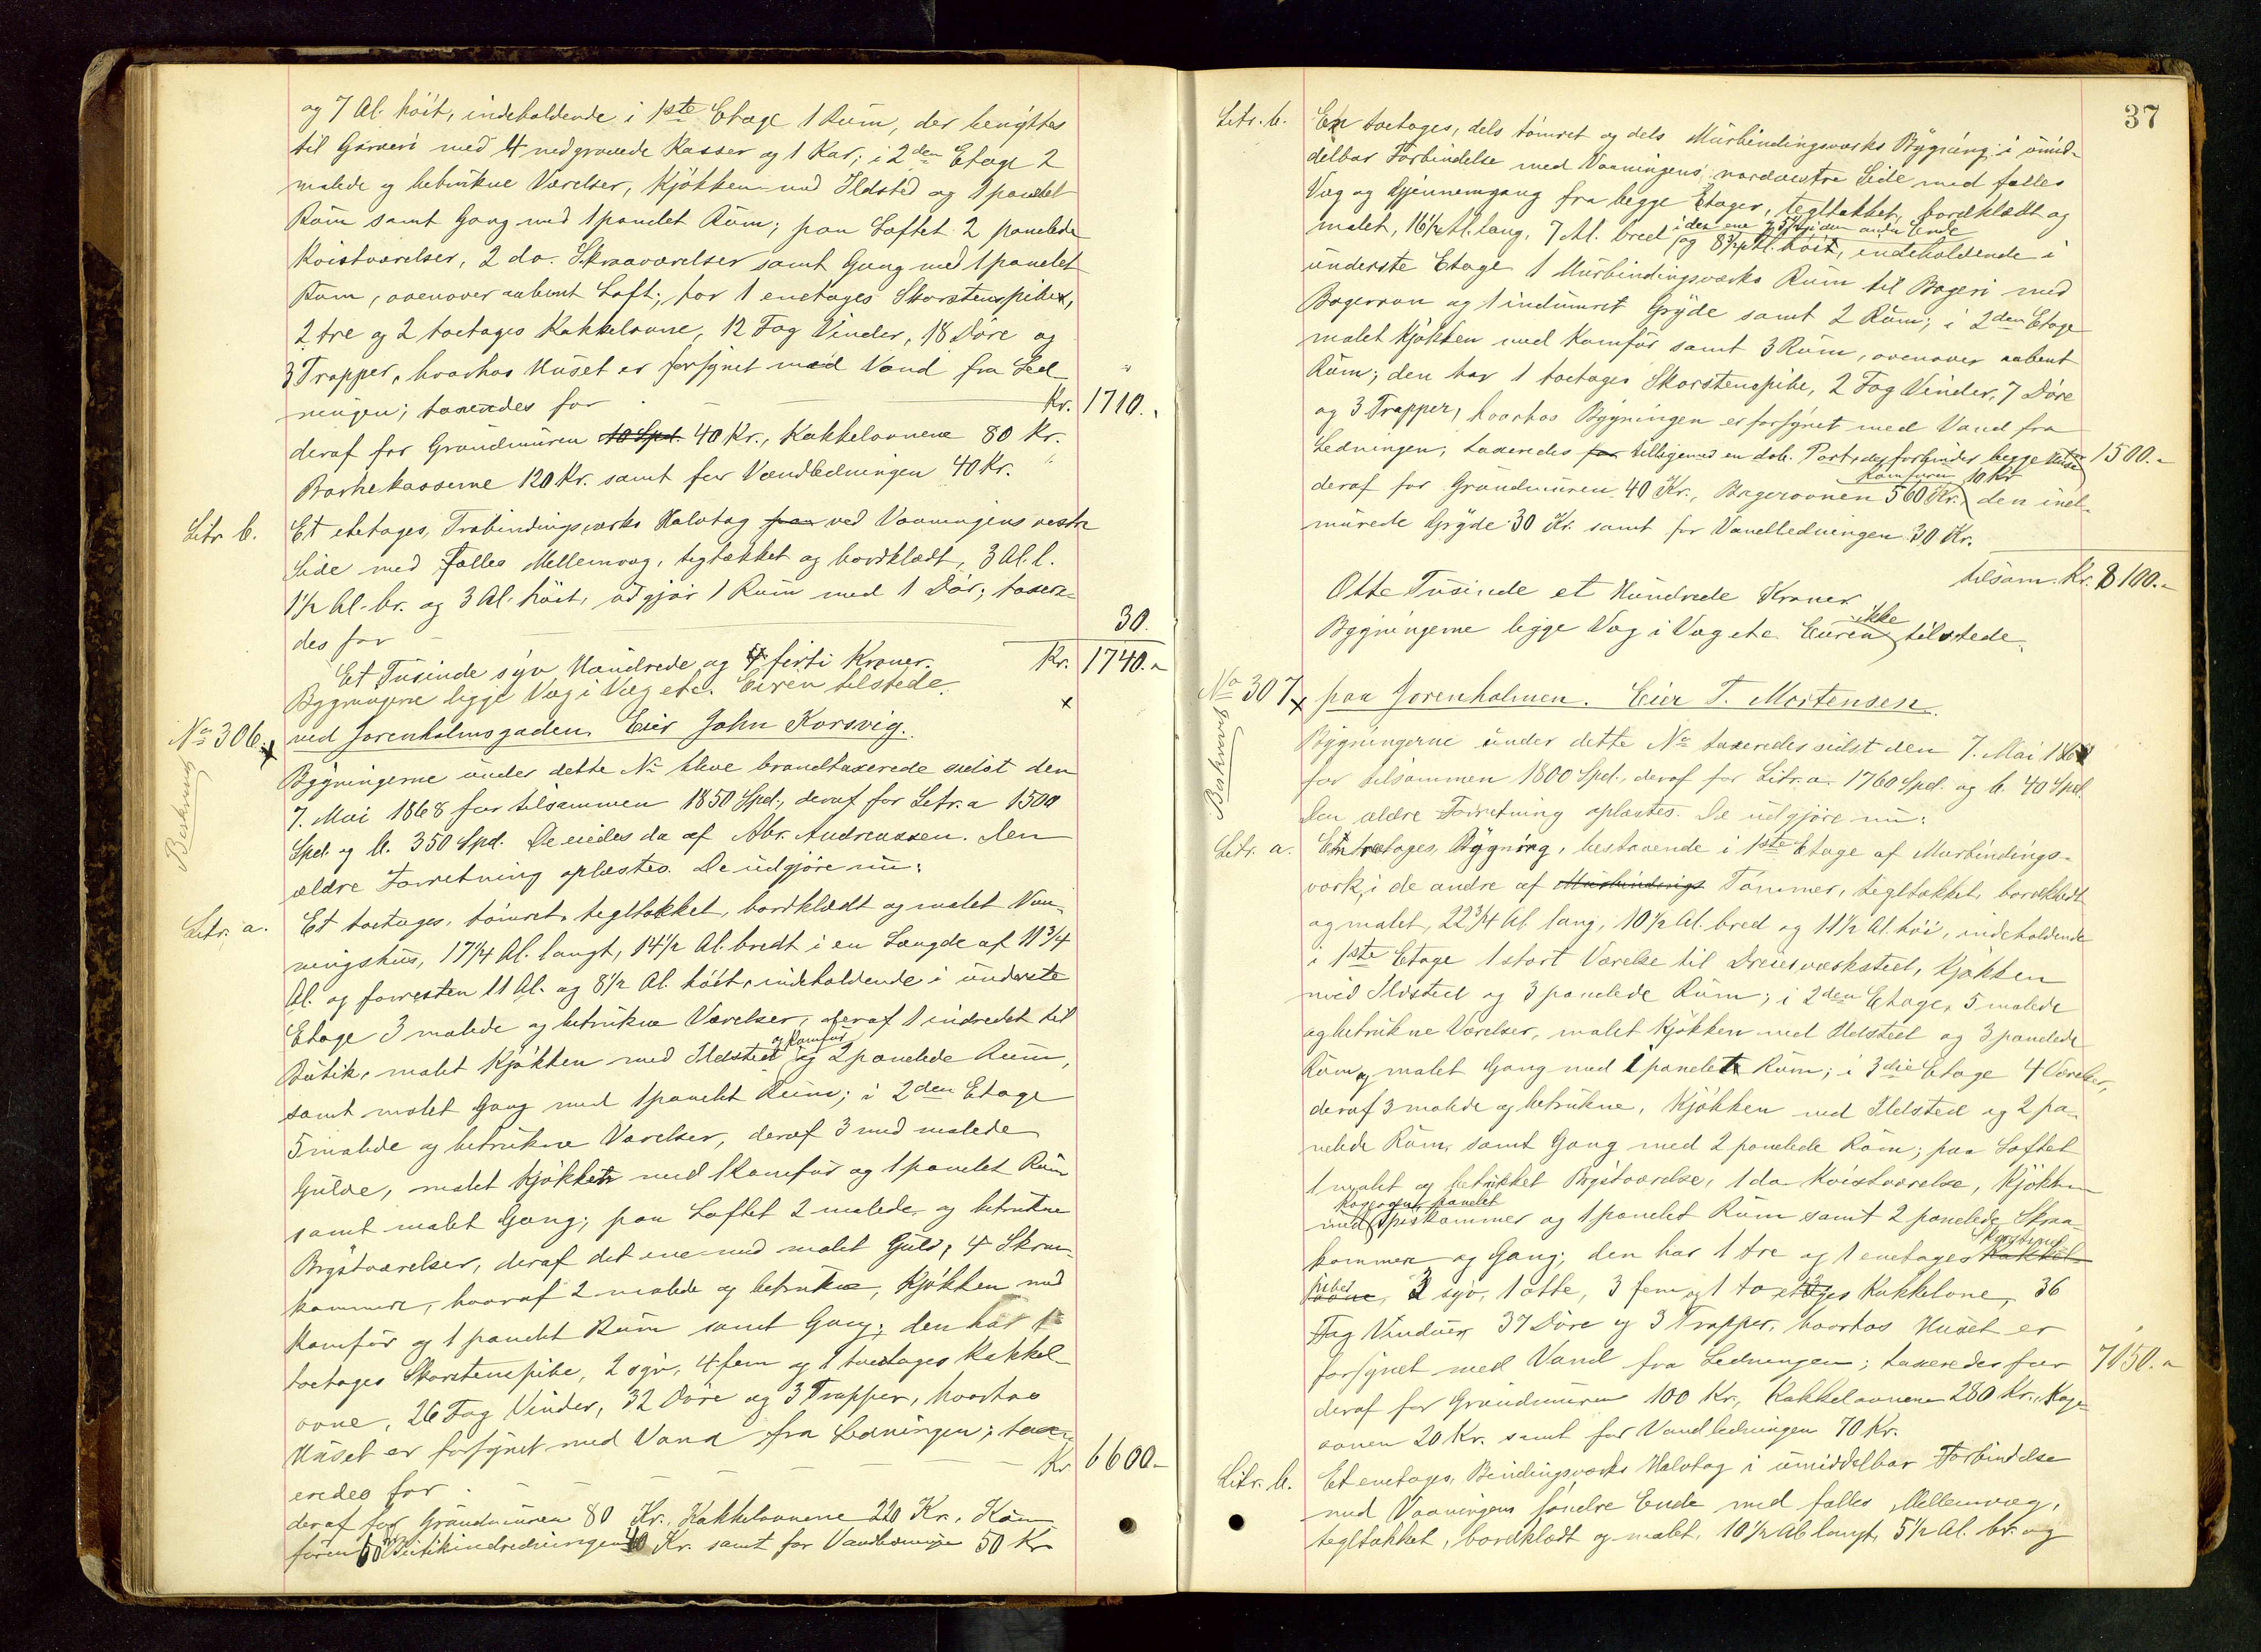 og 7 Al. höit, indeholdende i 1ste Etage 1 Rum, der benyttes
til Garveri med 4 nedgravede Kasser og 1 Kar; i 2den Etage 2
malede og betrukne Værelser, Kjökken med Ildsted og 1 panelet
Rum samt Gang med 1 panelet Rum; paa Loftet 2 panelede
Kvistværelser, 2 do. Skraaværelser samt Gang med 1 panelet
Rum, ovenover aabent Loft; har 1 enetages Skorstenspibe,
2 tre og 2 toetages Kakkelovne, 12 Fag Vinder, 18 Döre og
3 Trapper, hvorhos Huset er forsynet med Vand fra Led
ningen; taxeredes for Kr. 1710. "
deraf for Grundmuren 10 Spd. 40 Kr., Kakkelovnene 80 Kr.
Barkekasserne 120 Kr. samt for Vandledningen 40 Kr.
Litr b. Et etetages, Træbindingsværks Halvtag paa ved Vaaningens vestre
Side med fælles Mellemvæg, tegltækket og bordklædt, 3 Al. l.
1 1/2 Al. br. og 3 Al. höit, udgjör 1 Rum med 1 Dör; taxere-
des for 30.
Et Tusinde syv Hundrede og firti Kroner. Kr. 1740. "
Bygningerne ligge Væg i Væg etc. Eieren tilstede.
No 306. ved Jorenholmsgaden. Eier John Korsvig.
Beskrevet
Bygningerne under dette No bleve brandtaxerede sidst den
7. Mai 1868 for tilsammen 1850 Spd., deraf for Litr. a 1500
Spd. og b. 350 Spd. De eiedes da af Abr. Andreassen. Den
ældre Forretning oplæstes. De udgjöre nu:
Litr. a. Et toetages, tömret, tegltækket, bordklædt og malet Vaa-
ningshus, 17 1/4 Al. langt, 14 1/2 Al. bredt i en Længde af 11 3/4
Al. og forresten 11 Al. og 8 1/2 Al. höit, indeholdende i underste
Etage 3 malede og betrukne Værelser, deraf 1 indredet til
Butik, malet Kjökken med Ildsted og Komfur og 2 panelede Rum,
samt malet Gang med 1 panelet Rum; i 2den Etage
5 malede og betrukne Værelser, deraf 3 med malede
Gulve, malet Kjökken med 1 Komfur og 1 panelet Rum
samt malet Gang; paa Loftet 2 malede og betrukne
Brystværelser, deraf det ene med malet Gulv, 4 Skraa-
kammere, hvoraf 2 malede og betrukne, Kjökken med
Komfur og 1 panelet Rum samt Gang; den har 1
toetages Skorstenspibe, 2 syv, 4 fem og 1 toetages Kakkel-
ovne, 26 Fag Vinder, 32 Döre og 3 Trapper, hvorhos
Huset er forsynet med Vand fra Ledningen; tax-
eredes for Kr 6600.-
deraf for Grundmuren 80 Kr. Kakkelovnene 220 Kr., Kom
furen 60 Kr Butikindredningen 40 Kr. samt for Vandledningen 50 Kr
37
Litr. b. En toetages, dels tömret og dels Murbindingsværks Bygning i umid-
delbar Forbindelse med Vaaningens nordvestre Side med fælles
Væg og Gjennemgang fra begge Etager, tegltækket, bordklædt og
malet, 16 1/2 Al. lang, 7 Al. bred i den ene og 5 1/4 Al. i den anden Ende og 8 3/4 Al. höit, indeholdende i
underste Etage 1 Murbindingsværks Rum til Bageri med
Bagerovn og 1 indmuret Gryde samt 2 Rum; i 2den Etage
malet Kjökken med Komfur samt 3 Rum, ovenover aabent
Rum; den har 1 toetages Skorstenspibe, 2 Fag Vinder, 7 Döre
og 3 Trapper, hvorhos Bygningen er forsynet med Vand fra
Ledningen, taxeredes for tilligemed en dob. Port, der forbinder begge Huse 1500.-
deraf for Grundmuren 40 Kr., Bagerovnen 560 Kr. Komfuren 10 Kr den ind-
murede Gryde 30 Kr. samt for Vandledningen 30 Kr.
tilsam. Kr. 8100.-
Otte Tusinde et Hundrede Kroner
Bygningerne ligge Væg i Væg etc. Eieren ikke tilstede.
No 307 paa Jorenholmen. Eier T. Mortensen.
Beskrevet
Bygningerne under dette No taxeredes sidst den 7. Mai 1868
for tilsammen 1800 Spd., deraf for Litr. a. 1760 Spd. og b. 40 Spd.
Den ældre Forretning oplæstes. De udgjöre nu:
Litr. a. En treetages, Bygning, bestaaende i 1ste Etage af Murbindings-
værk, i de andre af Murbindings Tömmer, tegltækket, bordklædt
og malet, 22 3/4 Al. lang, 10 1/2 Al. bred og 11 1/2 Al. höi, indeholdende
i 1ste Etage 1 stort Værelse til Dreierværksted, Kjökken
med Ildsted og 3 panelede Rum; i 2den Etage, 5 malede
og betrukne Værelser, malet Kjökken med Ildsted og 3 panelede
Rum og malet Gang med 1 panelet Rum; i 3die Etage 4 Værelser,
deraf 3 malede og betrukne, Kjökken med Ildsted og 2 pa-
nelede Rum, samt Gang med 2 panelede Rum; paa Loftet
1 malet og betrukket Brystværelse, 1 do Kvistværelse, Kjökken
med Kogeovn, panelet Spiskammer og 1 panelet Rum samt 2 panelede Skraa-
kammer og Gang; den har 1 tre og 1 enetages Kakkel- Skorstens
ovne piber, 2 syv, 1 otte, 3 fem og 1 toetages Kakkelovne, 36
Fag Vinduer 37 Döre og 3 Trapper, hvorhos Huset er
forsynet med Vand fra Ledningen; taxeredes for 7050.-
deraf for Grundmuren 100 Kr., Kakkelovnene 280 Kr., Koge-
ovnen 20 Kr. samt for Vandledningen 70 Kr.
Litr. b. Et enetages, Bindingsværks Halvtag i umiddelbar Forbindelse
med Vaaningens söndre Ende med fælles Mellemvæg,
tegltækket, bordklædt og malet, 10 1/2 Al. langt, 5 1/2 Al. br. og